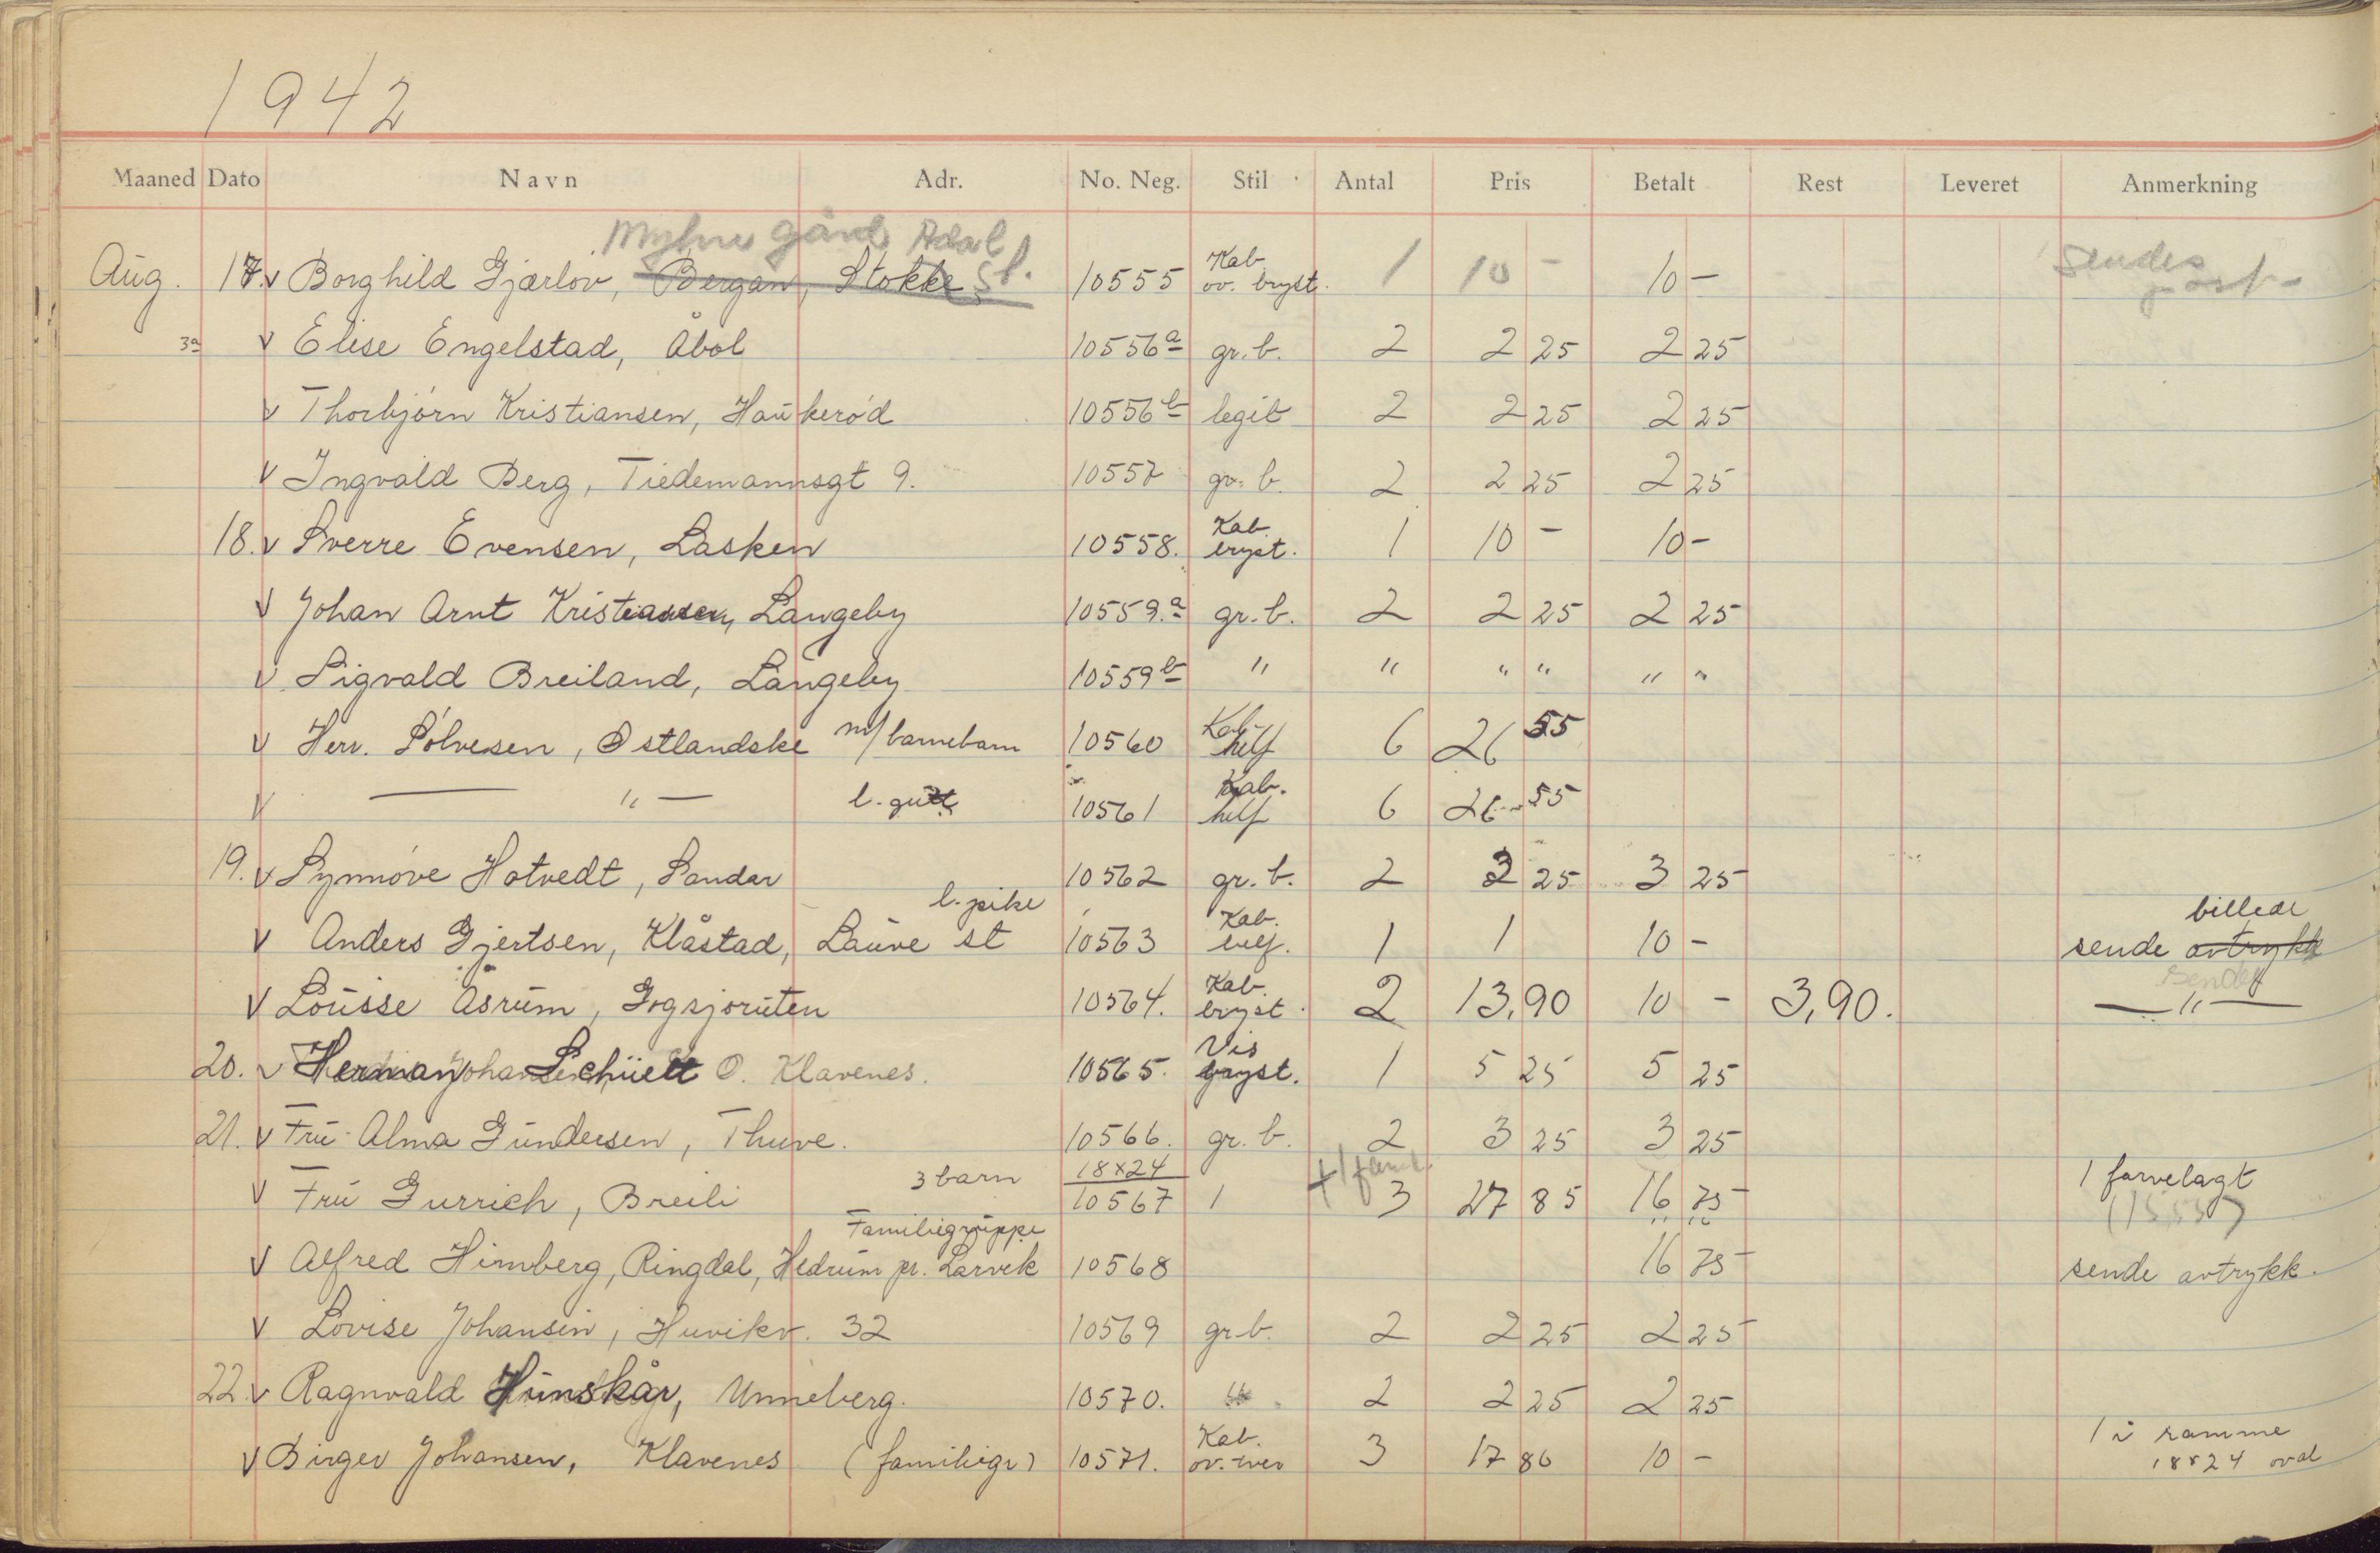 1942
Maaned Dato Navn Adr. No. Neg. Stil Antal Pris Betalt Rest Leveret Anmerkning
gård Adal st.
Aug. 17. v Borghild Gjærlöv, Bergan, Stokke 10555 Kab. ov. bryst. 1 10 - 10 - Sendes post-
3a v Elise Engelstad, Åbol 10556a gr. b. 2 2 25 2 25
v Thorbjörn Kristiansen, Haukeröd 10556b legit 2 2 25 2 25
v Ingvald Berg, Tiedemannsgt 9. 10557 gr. b. 2 2 25 2 25
18. v Sverre Evensen, Lasken 10558. Kab. bryst. 1 10 - 10 -
v Johan Arnt Kristiansen, Langeby 10559.a gr. b. 2 2 25 2 25
v Sigvald Breiland, Langeby 10559b " " " " " "
v Herr. Sölvesen, Östlandske m/barnebarn 10560 Kab. helf 6 26 55
v — " — l. gutt 10561 Kab. helf 6 26 55
19. v Synnöve Hotvedt, Sandar 10562 gr. b. 2 3 25 3 25
l. pike billede
v Anders Gjertsen, Klåstad, Lauve st 10563 Kab. helf. 1 1 10 - sende avtrykk
sendes
v Lousse Åsrum, Gogsjoruten 10564. Kab. bryst. 2 13,90 10 - 3,90. — " —
20. v Herman Schüett O. Klavenes. 10565. Vis bryst. 1 5 25 5 25
21. v Fru Alma Gundersen, Thuve. 10566. gr. b. 2 3 25 3 25
v Fru Gurrich, Breili 3 barn 18x24 10567 1 3 27 85 16 75 1 farvelagt
Familiegruppe
v Alfred Himberg, Ringdal, Hedrum pr. Larvik 10568 16 75 sende avtrykk.
v Lovise Johansen, Huvikv. 32 10569 gr. b. 2 2 25 2 25
22. v Ragnvald Hunskår, Unneberg. 10570. " 2 2 25 2 25
v Birger Johansen, Klavenes (familiegr) 10571. Kab. ov. tver 3 17 86 10 - 1 i ramme
18x24 oval